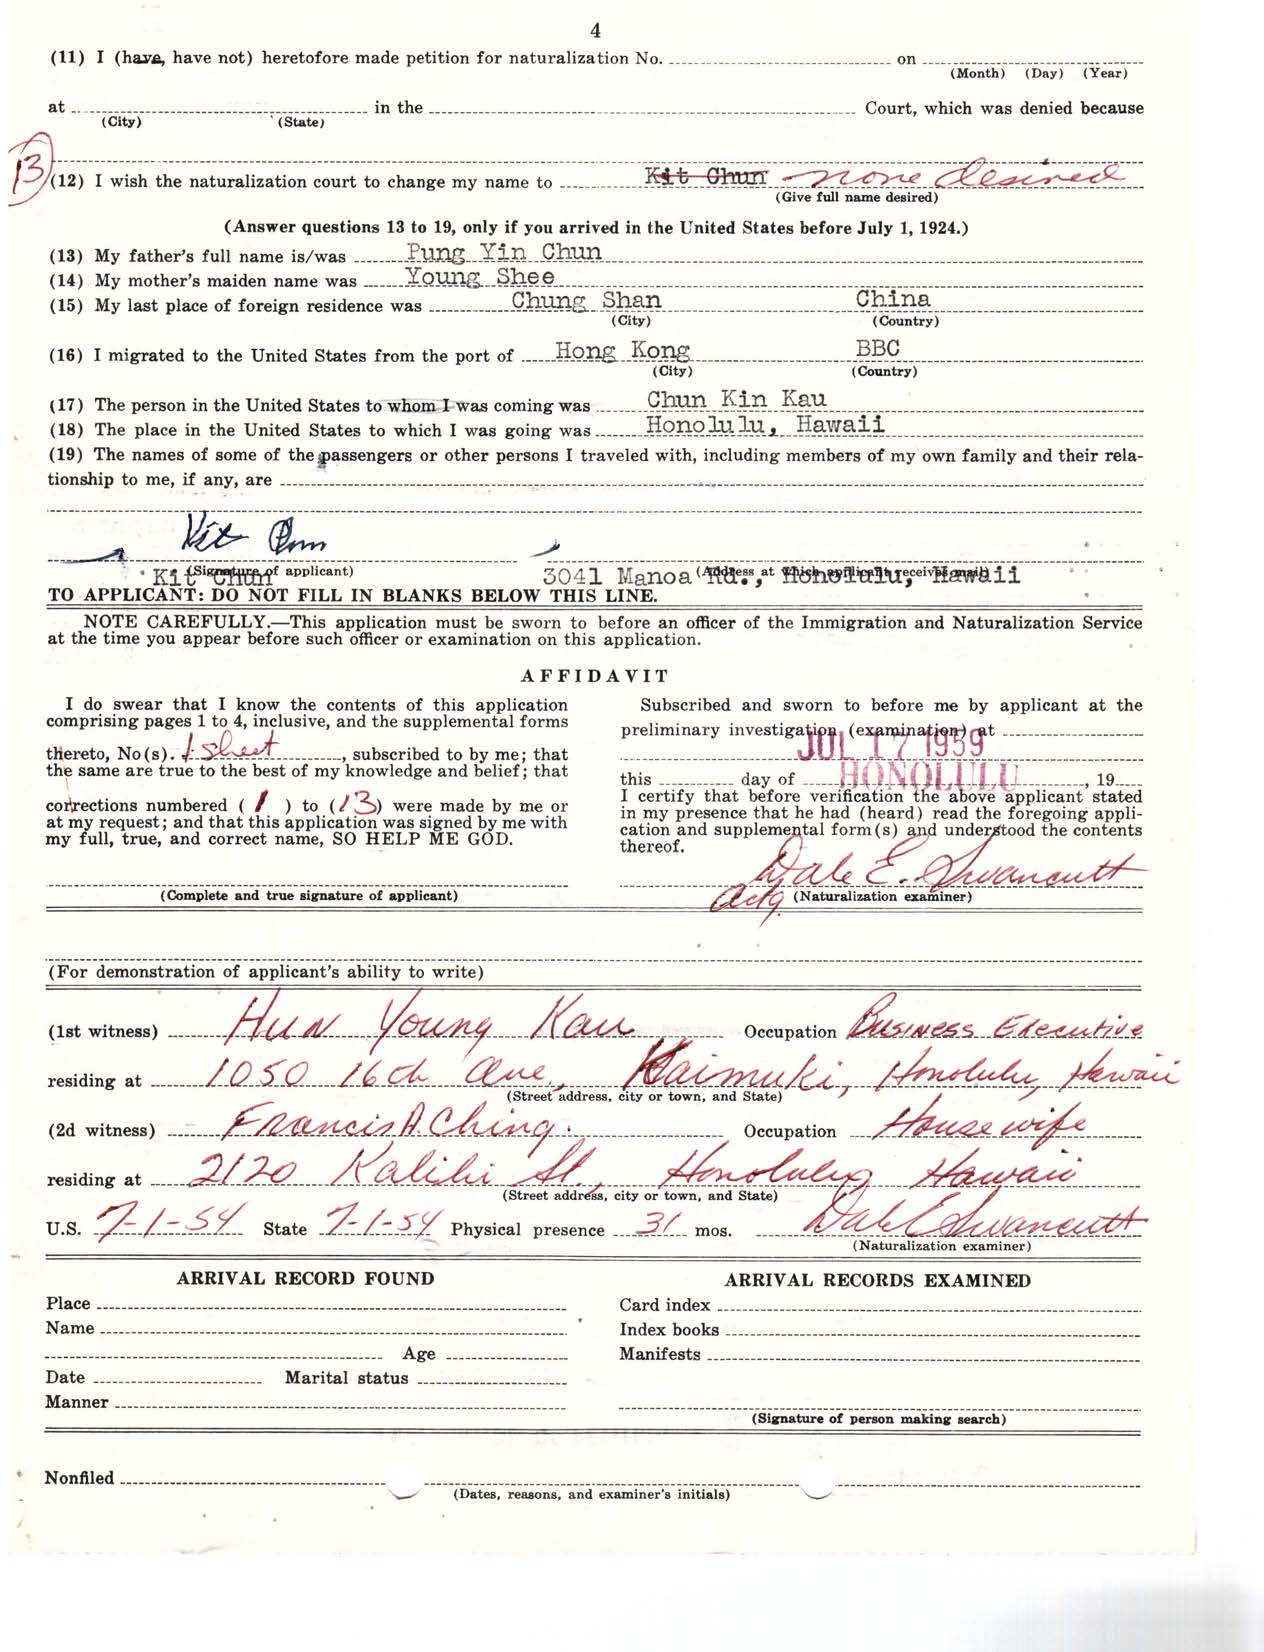 4
(11) I (have, have not) heretofore made petition for naturalization No. on
(Month) (Day) (Year)
at in the Court, which was denied because
(City) (State)
13
(12) I wish the naturalization court to change my name to Kit Chun none desired
(Give full name desired)
(Answer questions 13 to 19, only if you arrived in the United States before July 1, 1924.)
(13) My father's full name is/was Pung Yin Chun
(14) My mother's maiden name was Young Shee
(15) My last place of foreign residence was Chung Shan China
(City) (Country)
(16) I migrated to the United States from the port of Hong Kong BBC
(City) (Country)
(17) The person in the United States to whom I was coming was Chun Kin Kau
(18) The place in the United States to which I was going was Honolulu, Hawaii
(19) The names of some of the passengers or other persons I traveled with, including members of my own family and their rela-
tionship to me, if any, are
Kit Chun
(Signature of applicant) (Address at which applicant receives mail)
Kit Chun 3041 Manoa Rd., Honolulu, Hawaii
TO APPLICANT: DO NOT FILL IN BLANKS BELOW THIS LINE.
NOTE CAREFULLY.—This application must be sworn to before an officer of the Immigration and Naturalization Service
at the time you appear before such officer or examination on this application.
AFFIDAVIT
I do swear that I know the contents of this application
comprising pages 1 to 4, inclusive, and the supplemental forms
thereto, No(s). 1 sheet, subscribed to by me; that
the same are true to the best of my knowledge and belief; that
corrections numbered ( 1 ) to (13) were made by me or
at my request; and that this application was signed by me with
my full, true, and correct name, SO HELP ME GOD.
(Complete and true signature of applicant)
Subscribed and sworn to before me by applicant at the
preliminary investigation (examination) at
JUL 17 1959
this day of HONOLULU, 19
I certify that before verification the above applicant stated
in my presence that he had (heard) read the foregoing appli-
cation and supplemental form(s) and understood the contents
thereof.
Dale E. Swancutt
Actg. (Naturalization examiner)
(For demonstration of applicant's ability to write)
(1st witness) Hun Young Kau Occupation Business Executive
residing at 1050 16th Ave., Kaimuki, Honolulu, Hawaii
(Street address, city or town, and State)
(2d witness) Francis A. Ching Occupation Housewife
residing at 2120 Kalihi St., Honolulu, Hawaii
(Street address, city or town, and State)
U.S. 7-1-54 State 7-1-54 Physical presence 31 mos. Dale E Swancutt
(Naturalization examiner)
ARRIVAL RECORD FOUND
Place
Name
Age
Date Marital status
Manner
ARRIVAL RECORDS EXAMINED
Card index
Index books
Manifests
(Signature of person making search)
Nonfiled
(Dates, reasons, and examiner's initials)